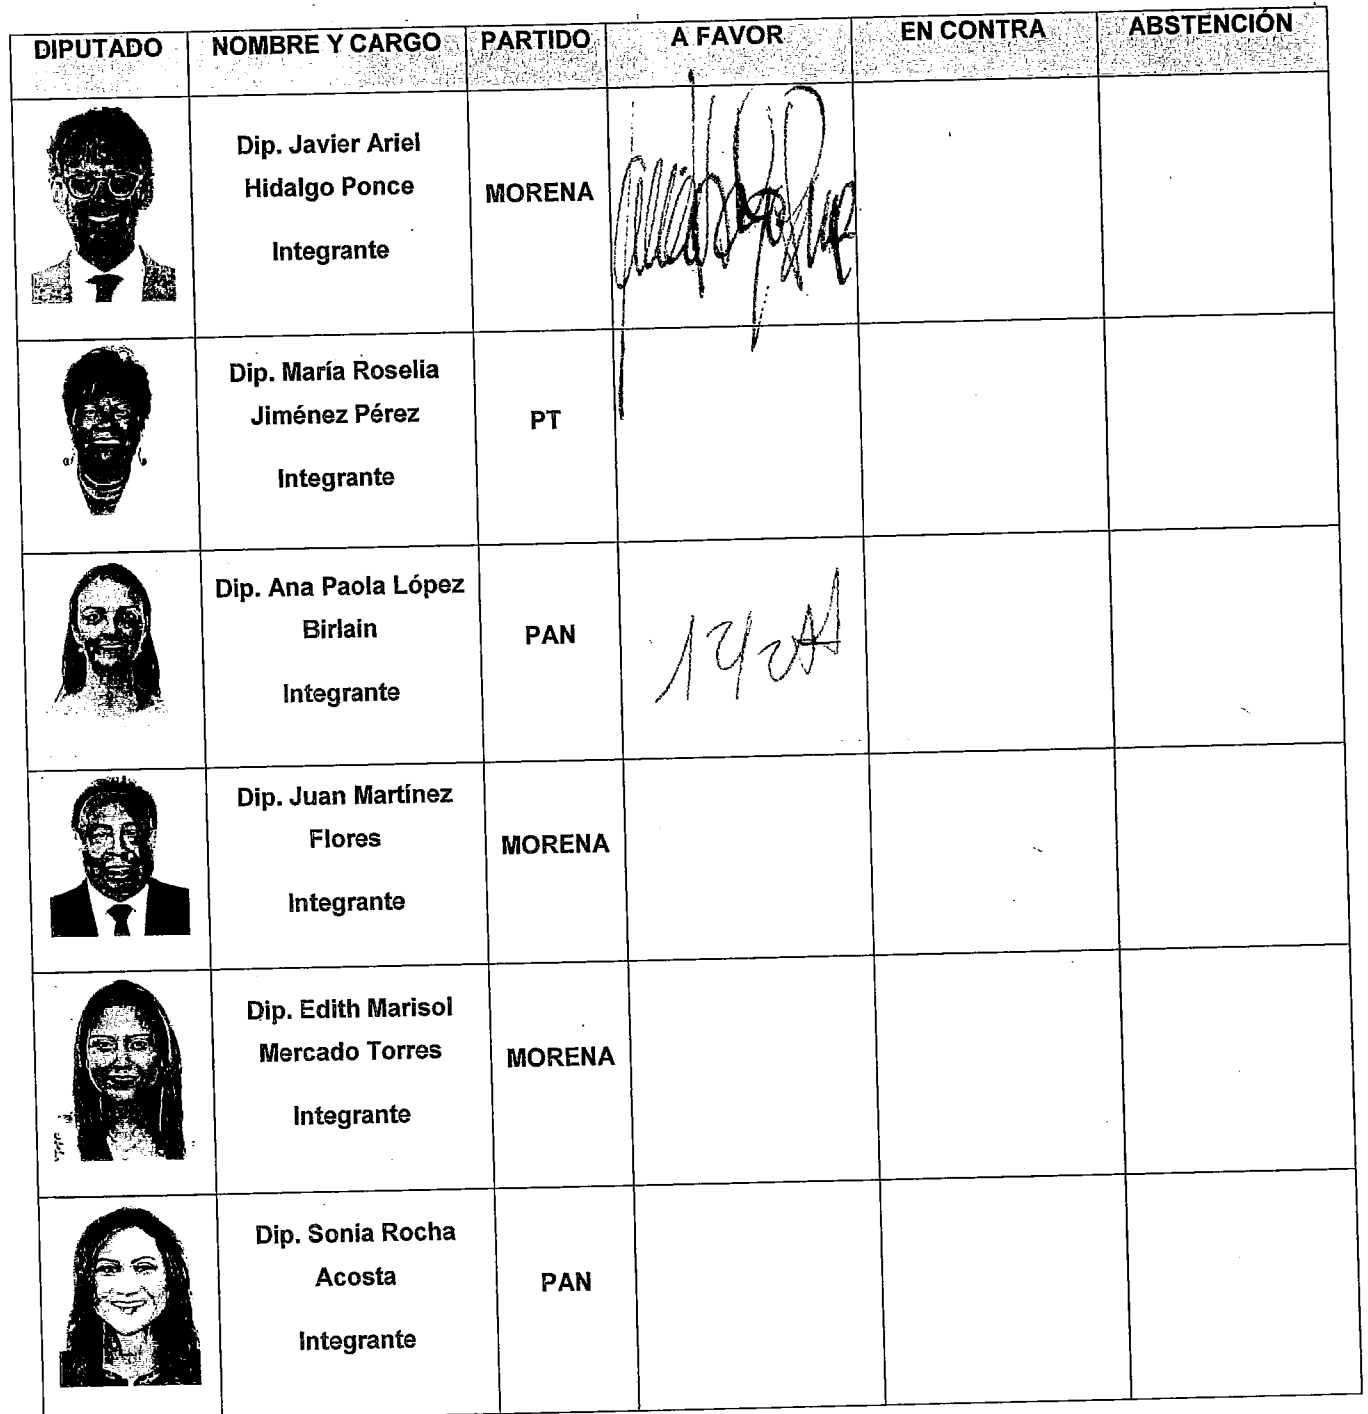 DIPUTADO NOMBRE Y CARGO PARTIDO A FAVOR EN CONTRA ABSTENCIÓN
Dip. Javier Ariel
Hidalgo Ponce
MORENA
Integrante
Dip. María Roselia
Jiménez Pérez
PT
Integrante
Dip. Ana Paola López
Birlain
PAN
Integrante
Dip. Juan Martínez
Flores
MORENA
Integrante
Dip. Edith Marisol
Mercado Torres
MORENA
Integrante
Dip. Sonia Rocha
Acosta
PAN
Integrante